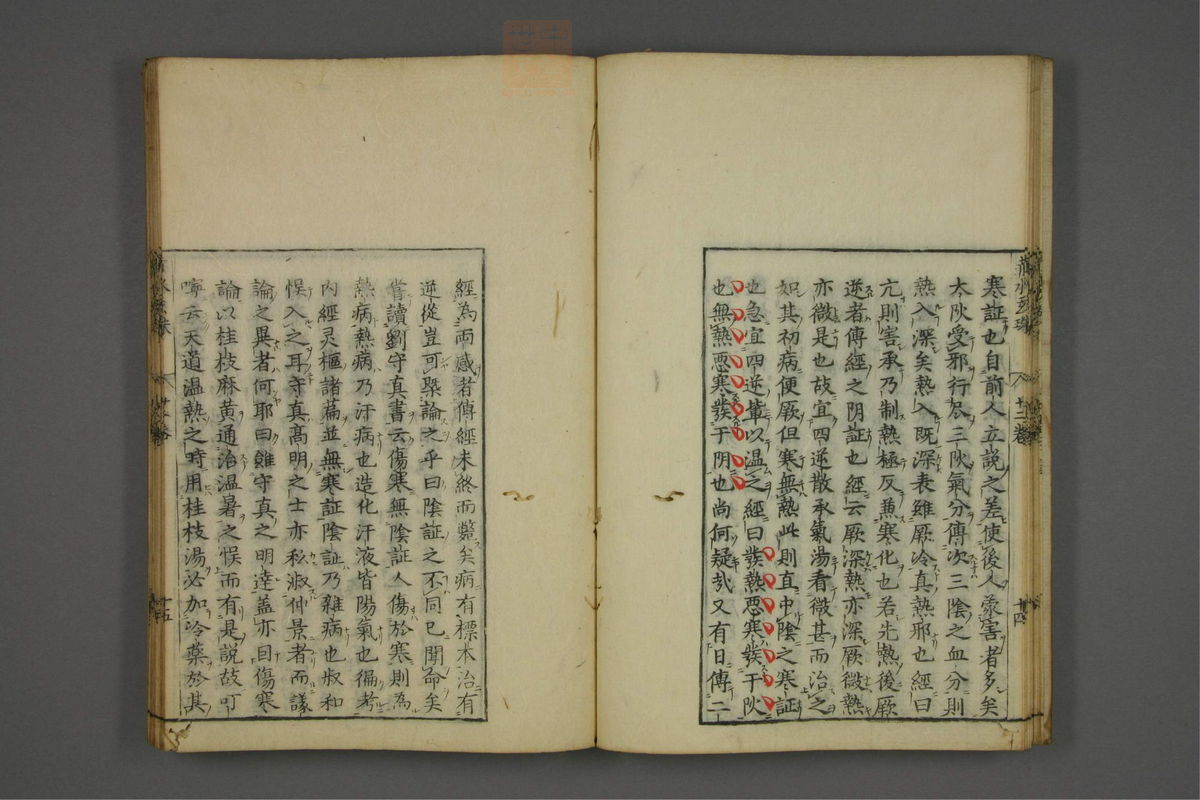 寒証也自前人立説之差使後人蒙害者多矣
太阦受邪行尽三阦氣分傳次三陰之血分則
熱入深矣熱入既深表雖厥冷真熱邪也經曰
亢則害承乃制熱極反兼寒化也若先熱後厥
逆者傳經之阴証也經云厥深熱亦深厥微熱
亦微是也故宜四逆散承氣湯看微甚而治之
如其初病便厥但寒無熱此則直中陰之寒証
也急宜四逆軰以温之經曰發熱悪寒發于阦
也無熱悪寒發于阴也尚何疑㢤又有日傳二
經為両感者傳經未終而斃矣病有標本治有
逆從豈可槩論之乎曰陰証之不同已聞命矣
嘗讀劉守真書云傷寒無陰証人傷於寒則為
熱病熱病乃汗病也造化汗液皆陽氣也徧考
内經灵樞諸篇並無寒証陰証乃雜病也叔和
悞入之耳守真高明之士亦私淑仲景者而議
論之異者何耶曰雖守真之明達盖亦因傷寒
論以桂枝麻黄通治温暑之悞而有是説故叮
嚀云天道温熱之時用桂枝湯必加冷藥於其